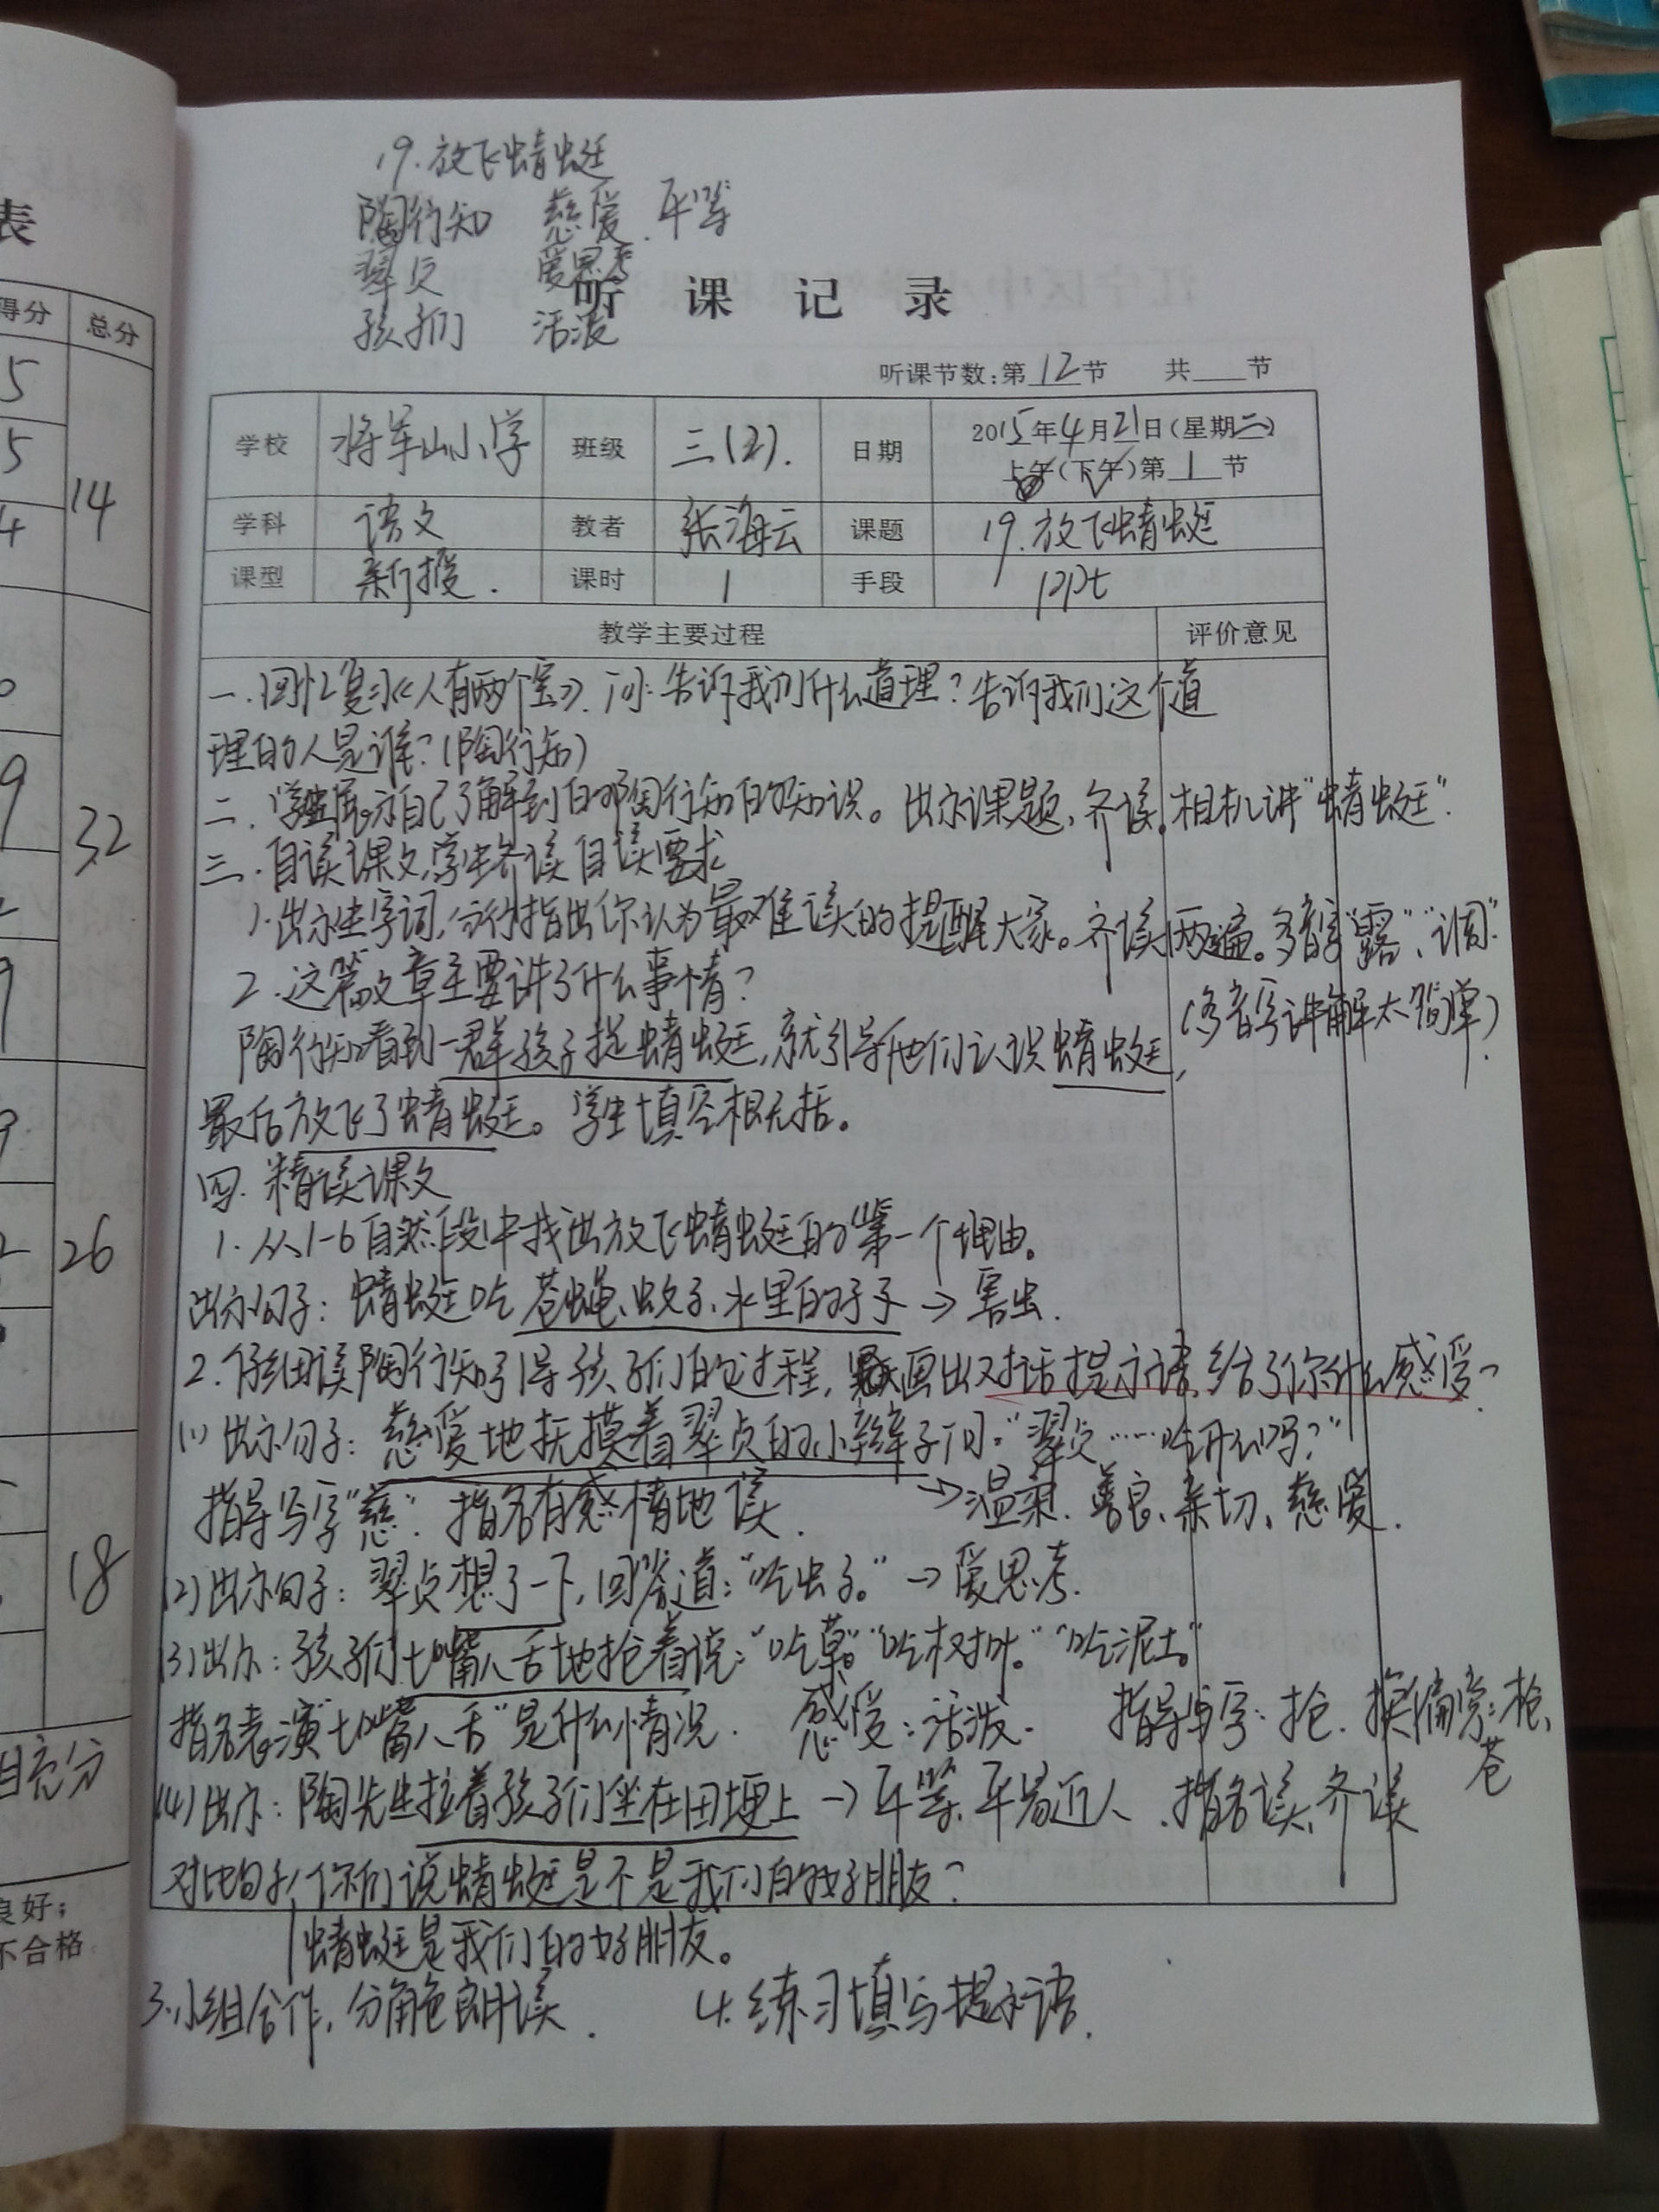 19.放飞蜻蜓
陶行知 慈爱.平等
翠贞 爱思考
孩子们 活泼
听课记录
听课节数:第12节 共 节
学校 将军山小学 班级 三(2). 日期 2015年4月21日(星期二)
上午(下午)第1节
学科 语文 教者 张海云 课题 19.放飞蜻蜓
课型 新授. 课时 1 手段 ppt
教学主要过程 评价意见
一.回忆复习《人有两个宝》.问:告诉我们什么道理?告诉我们这个道
理的人是谁?(陶行知)
二.学生展示自己了解到的陶行知的知识。出示课题,齐读.相机讲"蜻蜓".
三.自读课文,学生齐读自读要求
1.出示生字词,指出你认为最难读的提醒大家。齐读两遍。多音字"露"、"调".
(多音字讲解太简单)
2.这篇文章主要讲了什么事情?
陶行知看到一群孩子捉蜻蜓,就引导他们认识蜻蜓,
最后放飞了蜻蜓。学生填空概括。
四.精读课文
1.从1-6自然段中找出放飞蜻蜓的第一个理由。
出示句子:蜻蜓吃苍蝇、蚊子、水里的孑孓→害虫.
2.仔细读陶行知引导孩子们的过程,画出对话提示语,给了你什么感受?
(1)出示句子:慈爱地抚摸着翠贞的小辫子问:"翠贞……吃什么吗?"
→温柔.善良、亲切、慈爱.
指导写字"慈".指名有感情地读.
(2)出示句子:翠贞想了一下,回答道:"吃虫子。"→爱思考.
(3)出示:孩子们七嘴八舌地抢着说:"吃草。""吃树叶。""吃泥土。"
指名表演"七嘴八舌"是什么情况. 感受:活泼. 指导写字:抢.换偏旁:枪、
苍
(4)出示:陶先生拉着孩子们坐在田埂上→平等、平易近人.指名读、齐读
对比句子 你们说蜻蜓是不是我们的好朋友?
蜻蜓是我们的好朋友。
3.小组合作,分角色朗读. 4.练习填写提示语.
表
得分 总分
5
5 14
4
9 32
26
18
良好;
不合格